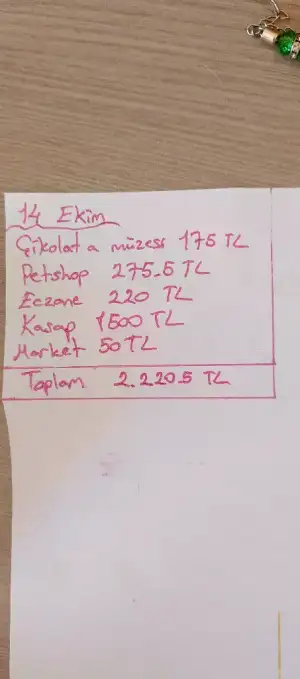 14 Ekim
Çikolat a müzess 175 TL
Petshop 275.5 TL
Eczane 220 TL
Kasap 1500 TL
Market 50 TL
Toplam 2.220.5 TL